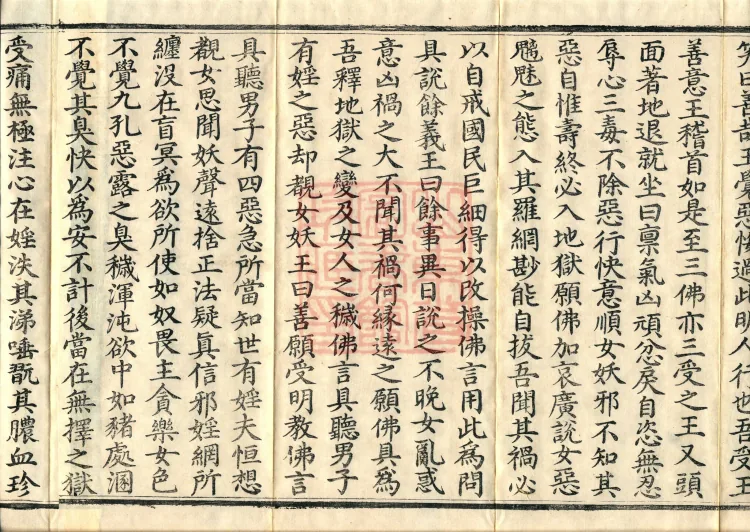 曰善哉王覺惡悔過此明人行也吾受王
善意王稽首如是至三佛亦三受之王又頭
面著地退就坐曰禀氣凶頑忿戾自恣無忍
辱心三毒不除惡行快意順女妖邪不知其
惡自惟壽終必入地獄願佛加哀廣說女惡
魑魅之態入其羅網尠能自拔吾聞其禍必
以自戒國民巨細得以改操佛言用此為問
具說餘義王曰餘事異日說之不晚女亂惑
意凶禍之大不聞其禍何緣遠之願佛具為
吾釋地獄之變及女人之穢佛言具聽男子
有婬之惡却覩女妖王曰善願受明教佛言
具聽男子有四惡急所當知世有婬夫恒想
覩女思聞妖聲遠捨正法疑眞信邪婬網所
纏沒在盲冥為欲所使如奴畏主貪樂女色
不覺九孔惡露之臭穢渾沌欲中如豬處溷
不覺其臭快以為安不計後當在無擇之獄
受痛無極注心在婬泆其涕唾翫其膿血珍